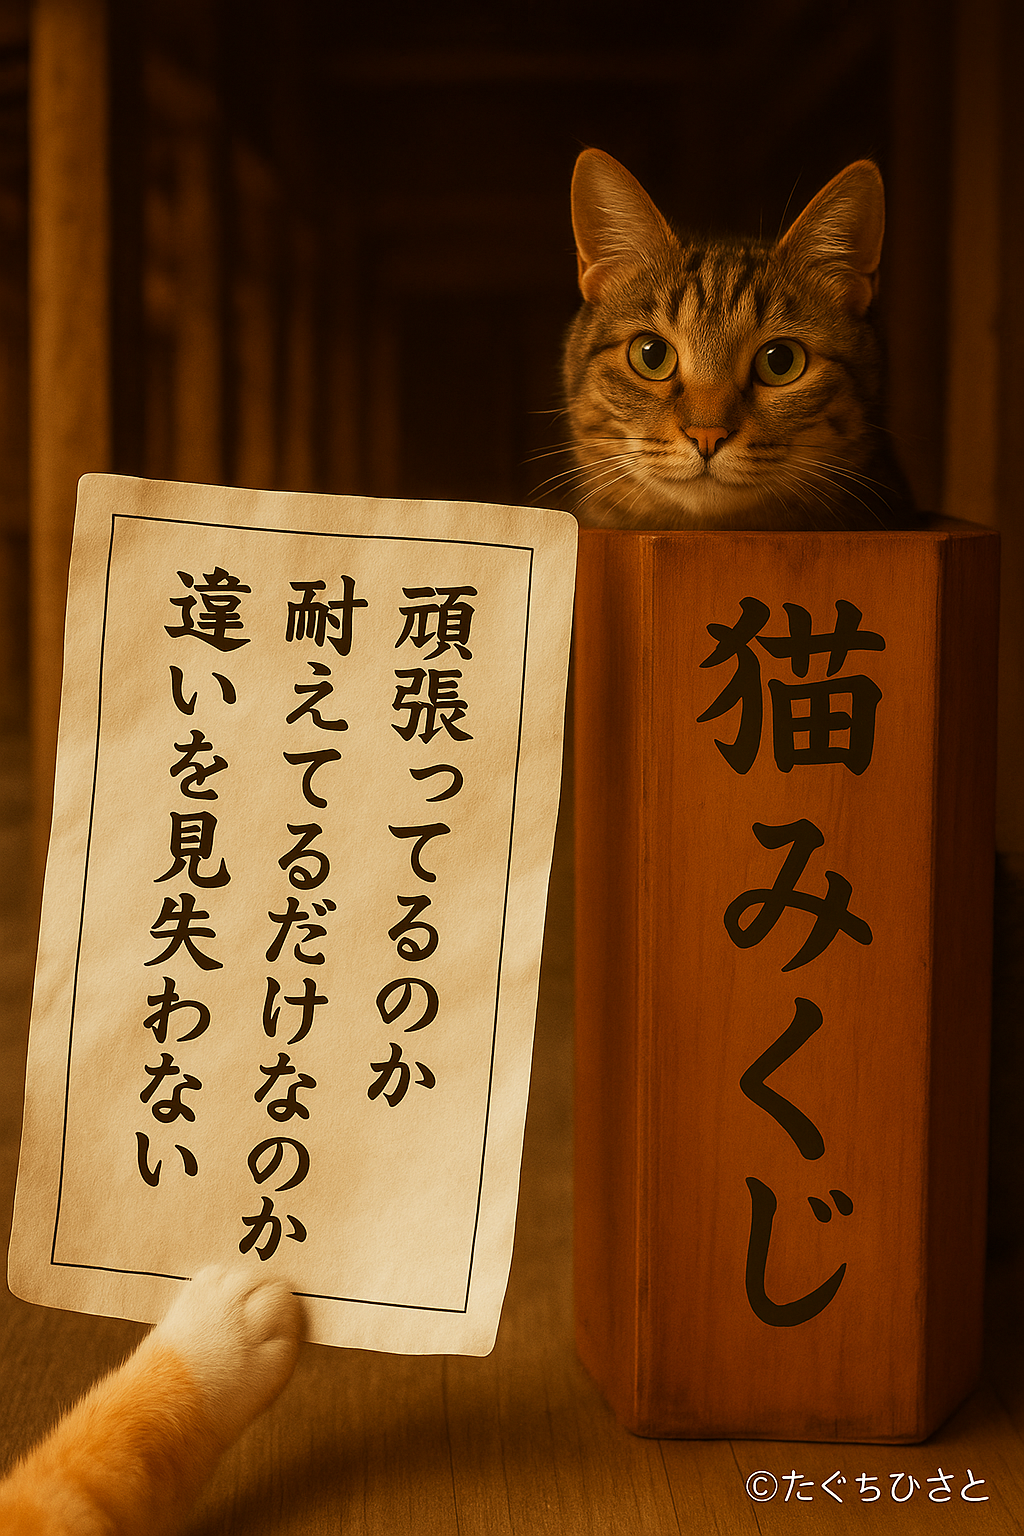 頑張ってるのか
耐えてるだけなのか
違いを見失わない
猫みくじ
©たぐちひさと